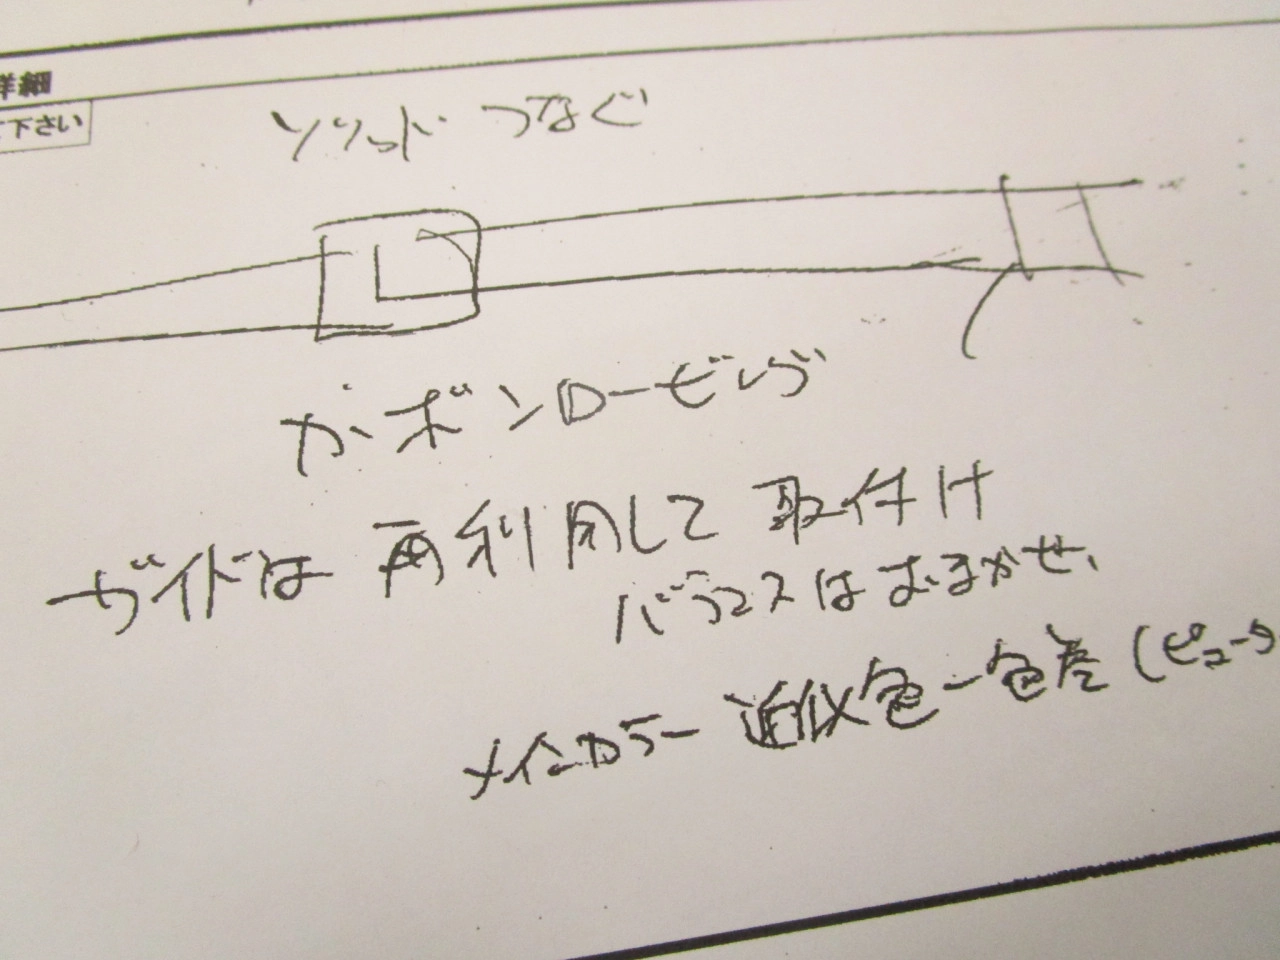 詳細
て下さい
ソリッド つなぐ
カーボンロービング
ガイドは 再利用して 取付け
バランスはおまかせ、
メインカラー 近似色ー色差 (ピュータ